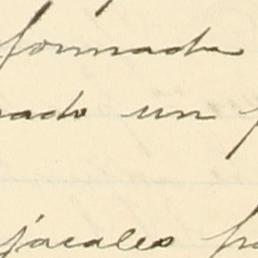 formada
ado un
jacales